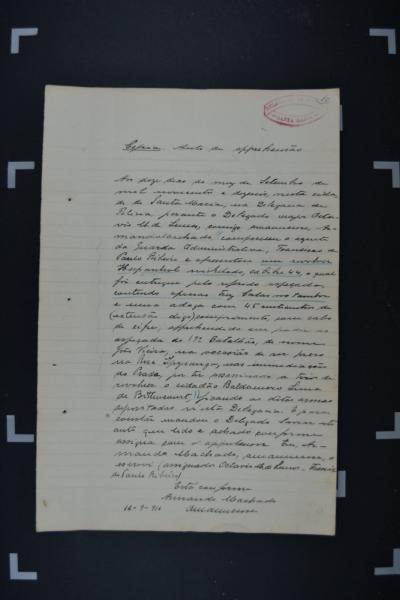 Copia. Auto de apprehensão
Aos doze dias do mez de Setembro de
mil novecentos e dezeseis, nesta cida-
de de Santa Maria, na Delegacia de
Policia perante o Delegado major Octa-
vio M. de Lemos, commigo amanuense, Ar-
mando Machado, compareceu o agente
da Guarda Administrativa, Francisco de
Paulo Ribeiro e apresentou um revolver
Hespanhol nickelado, calibre 44, o qual
foi entregue pelo referido aspeçado,
contendo apenas tres balas no tambor
e uma adaga com 45 centimetros de
(extensão digo) comprimento, com cabo
de xifre, apprehendido em poder do
aspeçada do 1º Batalhão, de nome
João Vieira, na occasião de ser preso
na Rua Ypiranga, nas immediações
do Prado, por ter assassinado a tiros de
revolver o cidadão Baldomero Lima
de Bithencourt, ficando as ditas armas
depositadas nesta Delegacia. E para
constar mandou o Delegado lavrar este
auto que lido e achado conforme
assigna com o apprehensor. Eu, Ar-
mando Machado, amanuense, o
escrevi (assignado Octavio M. de Lemos - Francis-
co de Paulo Ribeiro)
Está conforme
Armando Machado
12-9-916 Amanuense